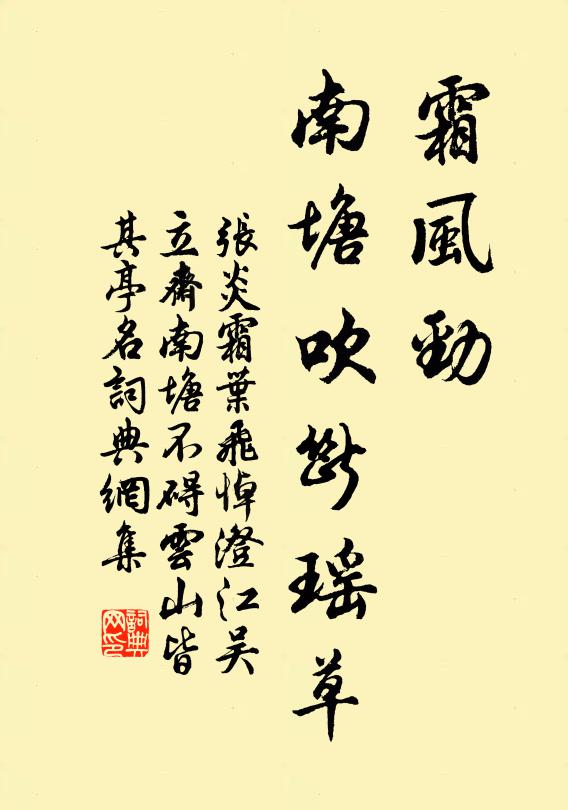 霜風勁
南塘吹斷瑶草
張炎霜葉飛悼澄江吴
立齋南塘不碍雲山皆
其亭名詞典網集
詞典
网印